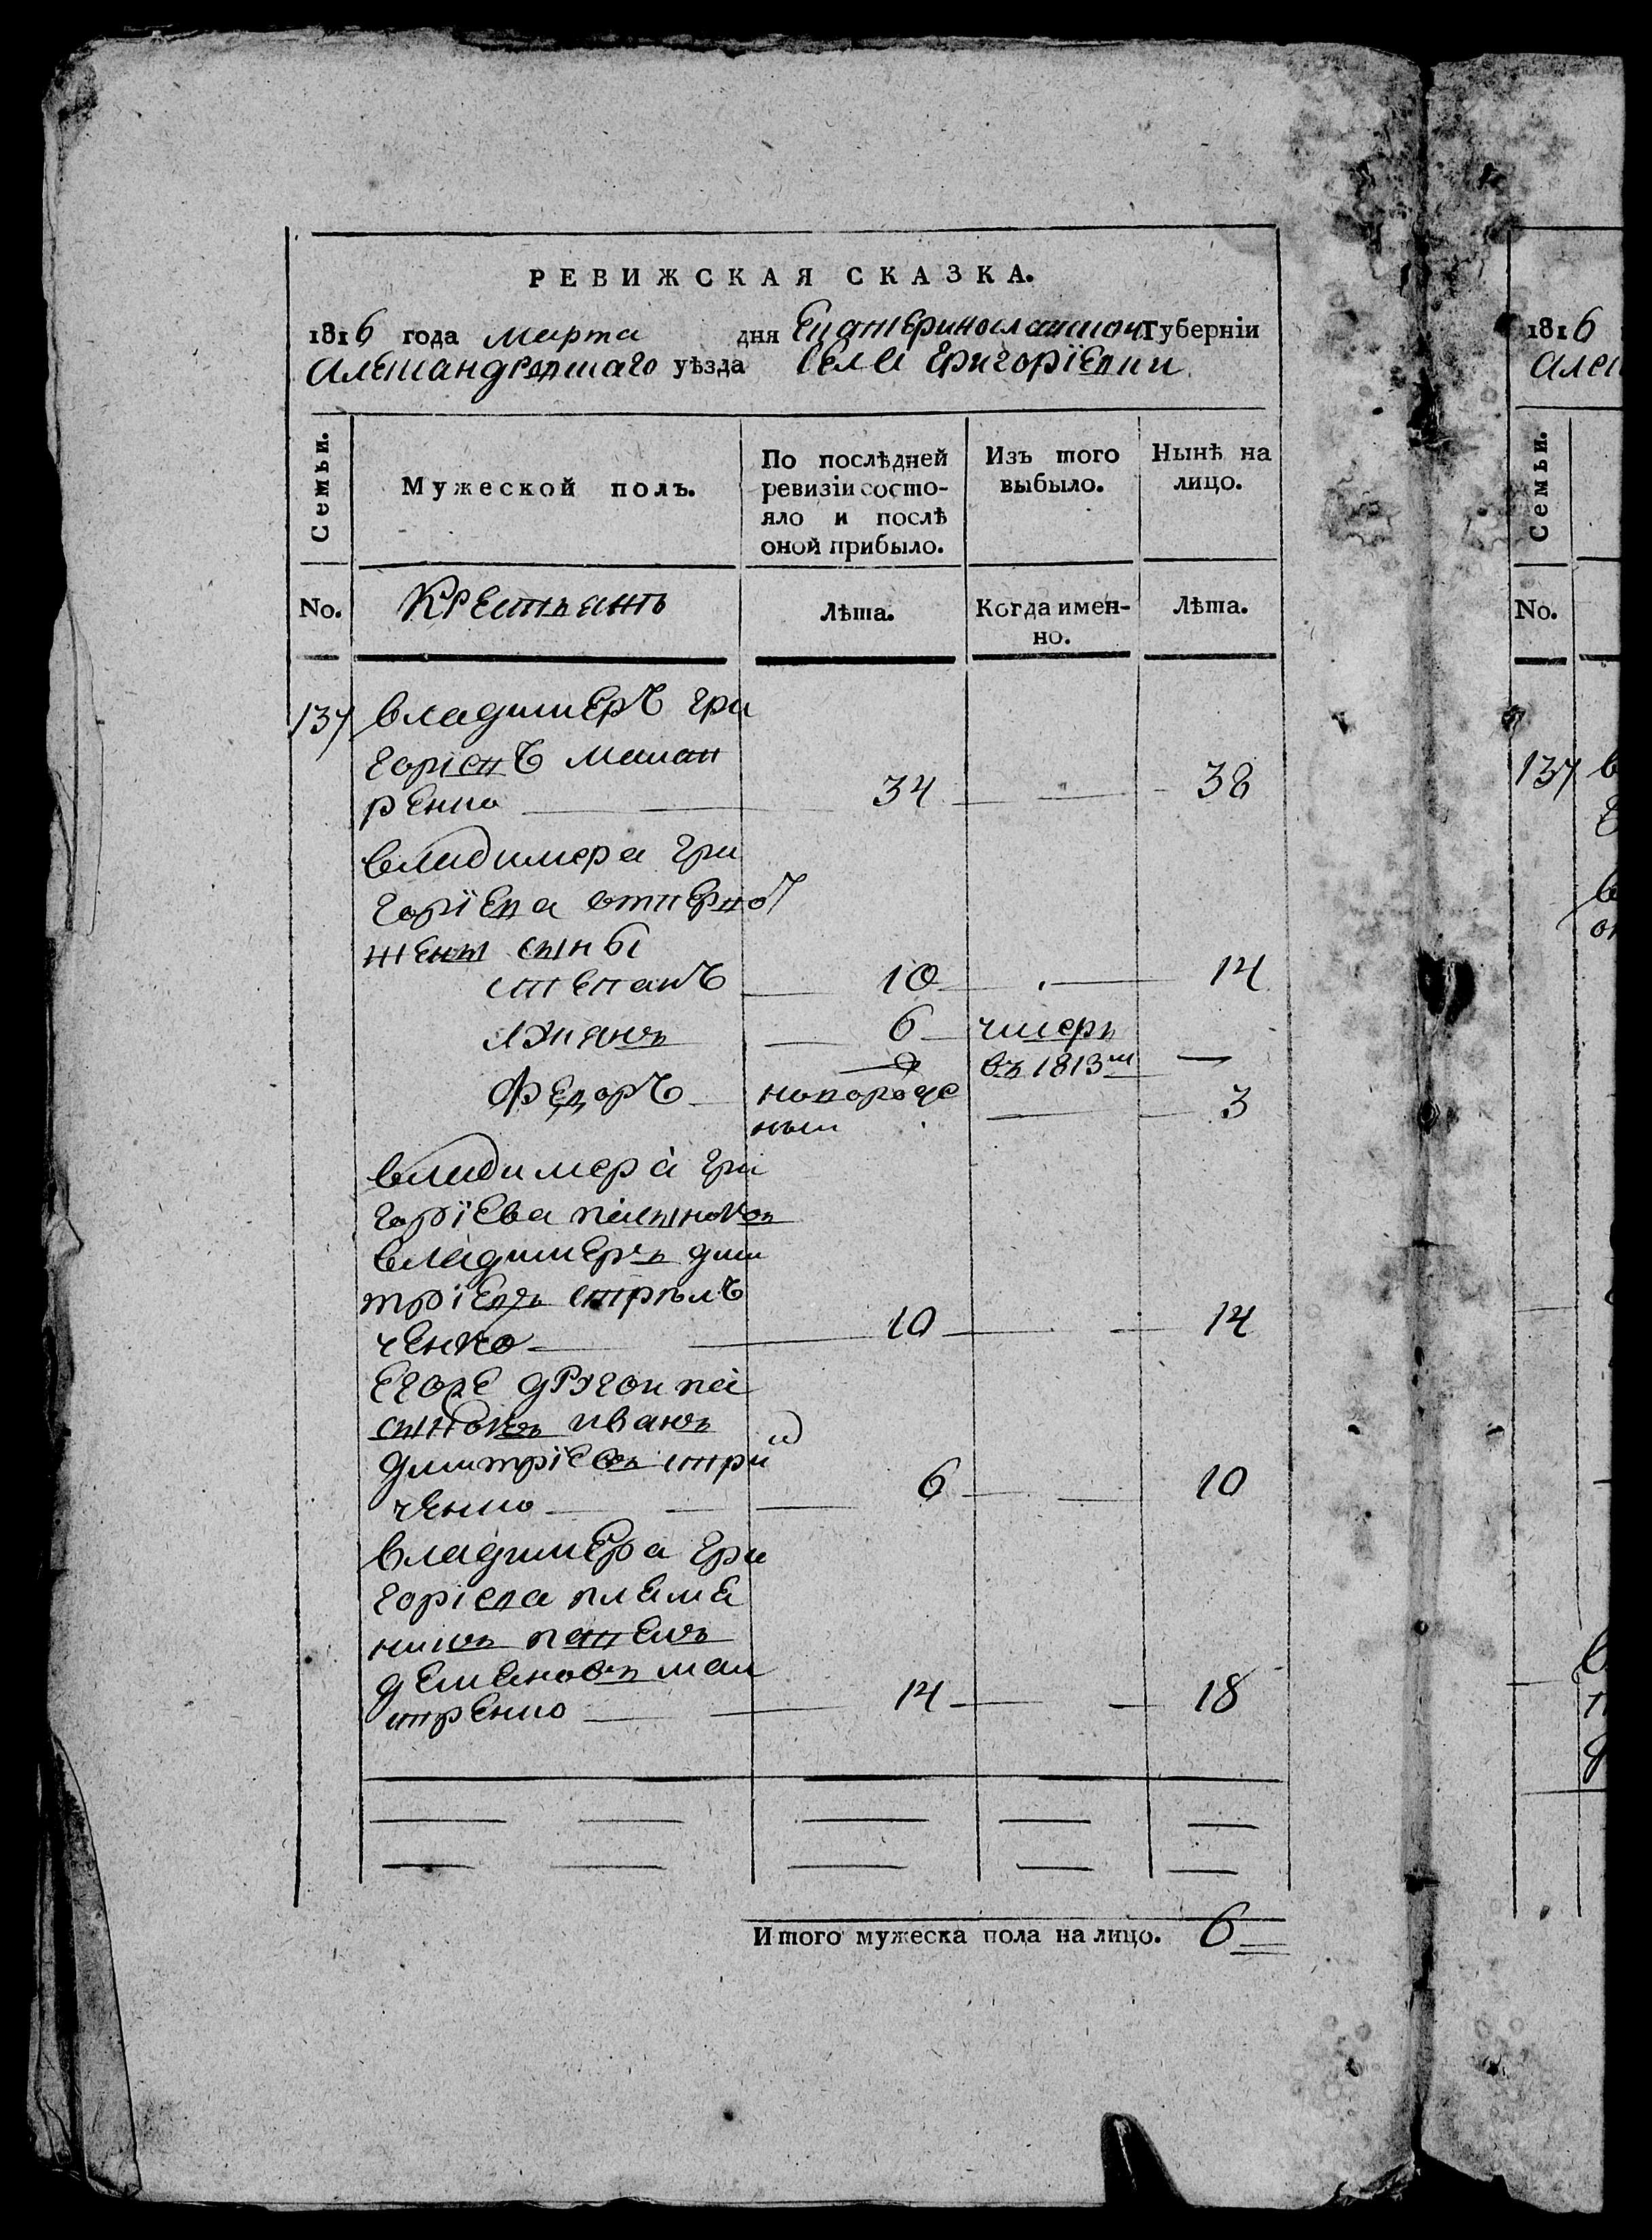 РЕВИЖСКАЯ СКАЗКА.
1816 года марта дня Екатеринославской Губерніи
Александровскаго уѣзда села Григорїевки
Семьи.
Мужеской полъ.
По послѣдней ревизіи состо-
яло и послѣ
оной прибыло.
Изъ того
выбыло.
Нынѣ на
лицо.
No.
Крестьянъ
Лѣта.
Когда имен-
но.
Лѣта.
137 владимеръ гри
горіевъ
34 38
владимера гри
горїева отперво
жены сыны
степанъ 10 14
лукянъ 6 умеръ
въ 1813м
Федоръ новорожде
ный 3
владимера гри
горїева пасынокъ
владимеръ дми
трїевъ стрѣль
ченко 10 14
Егоже другои па
сынокъ иванъ
дмитрїевъ
ченко 6 10
владимера гри
горіева племе
никъ павелъ
деменовъ
14 18
Итого мужеска пола на лицо. 6
1816
137
Семьи.
No.